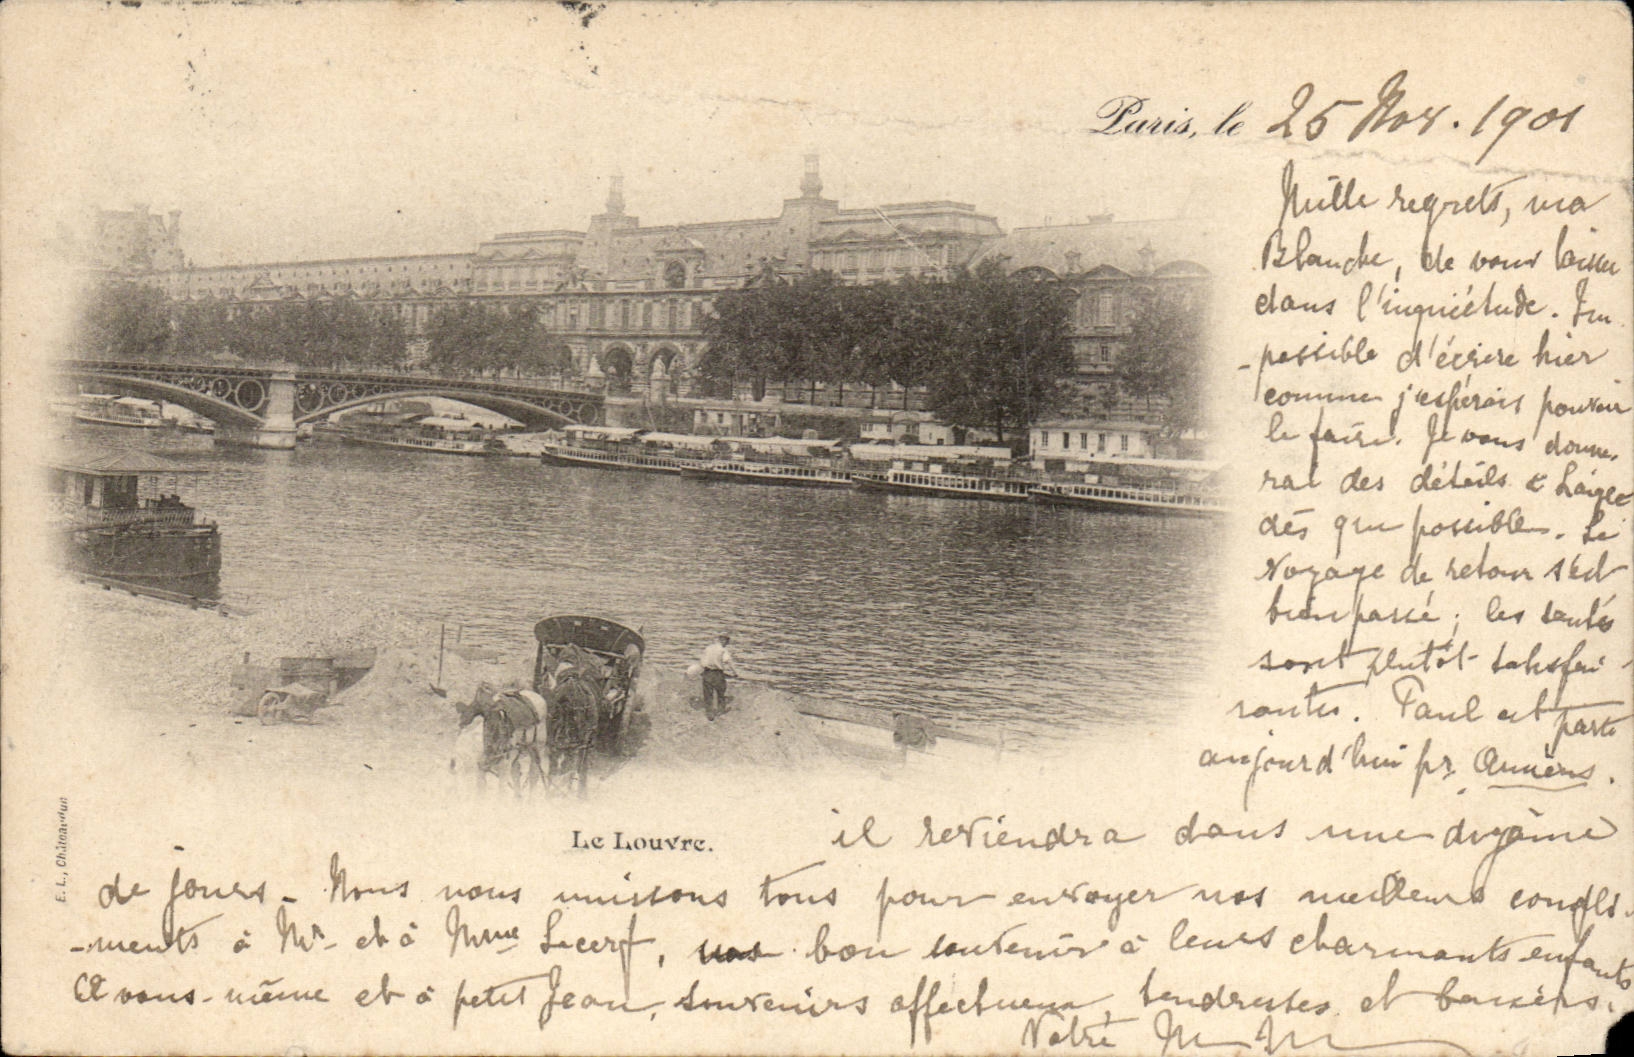 Paris, le 25 Nov. 1901
Mille regrets, ma
Blanche, de vous laisser
dans l'inquiétude. Im
-possible d'écrire hier
comme j'espérais pouvoir
le faire. Je vous donne-
rai des détails
dès que possible. Le
voyage de retour s'est
bien passé ; les santés
sont plutôt satisfai-
santes. Paul est parti
aujourd'hui pr
il reviendra dans une dizaine
de jours - Nous nous unissons tous pour envoyer nos meilleurs compli-
-ments à Mr et à Mme Lecerf, bon souvenir à leurs charmants enfants
A vous-même et à petit Jean, souvenirs affectueux, tendresses et baisers.
Votre
Le Louvre.
E. L., Châteaudun